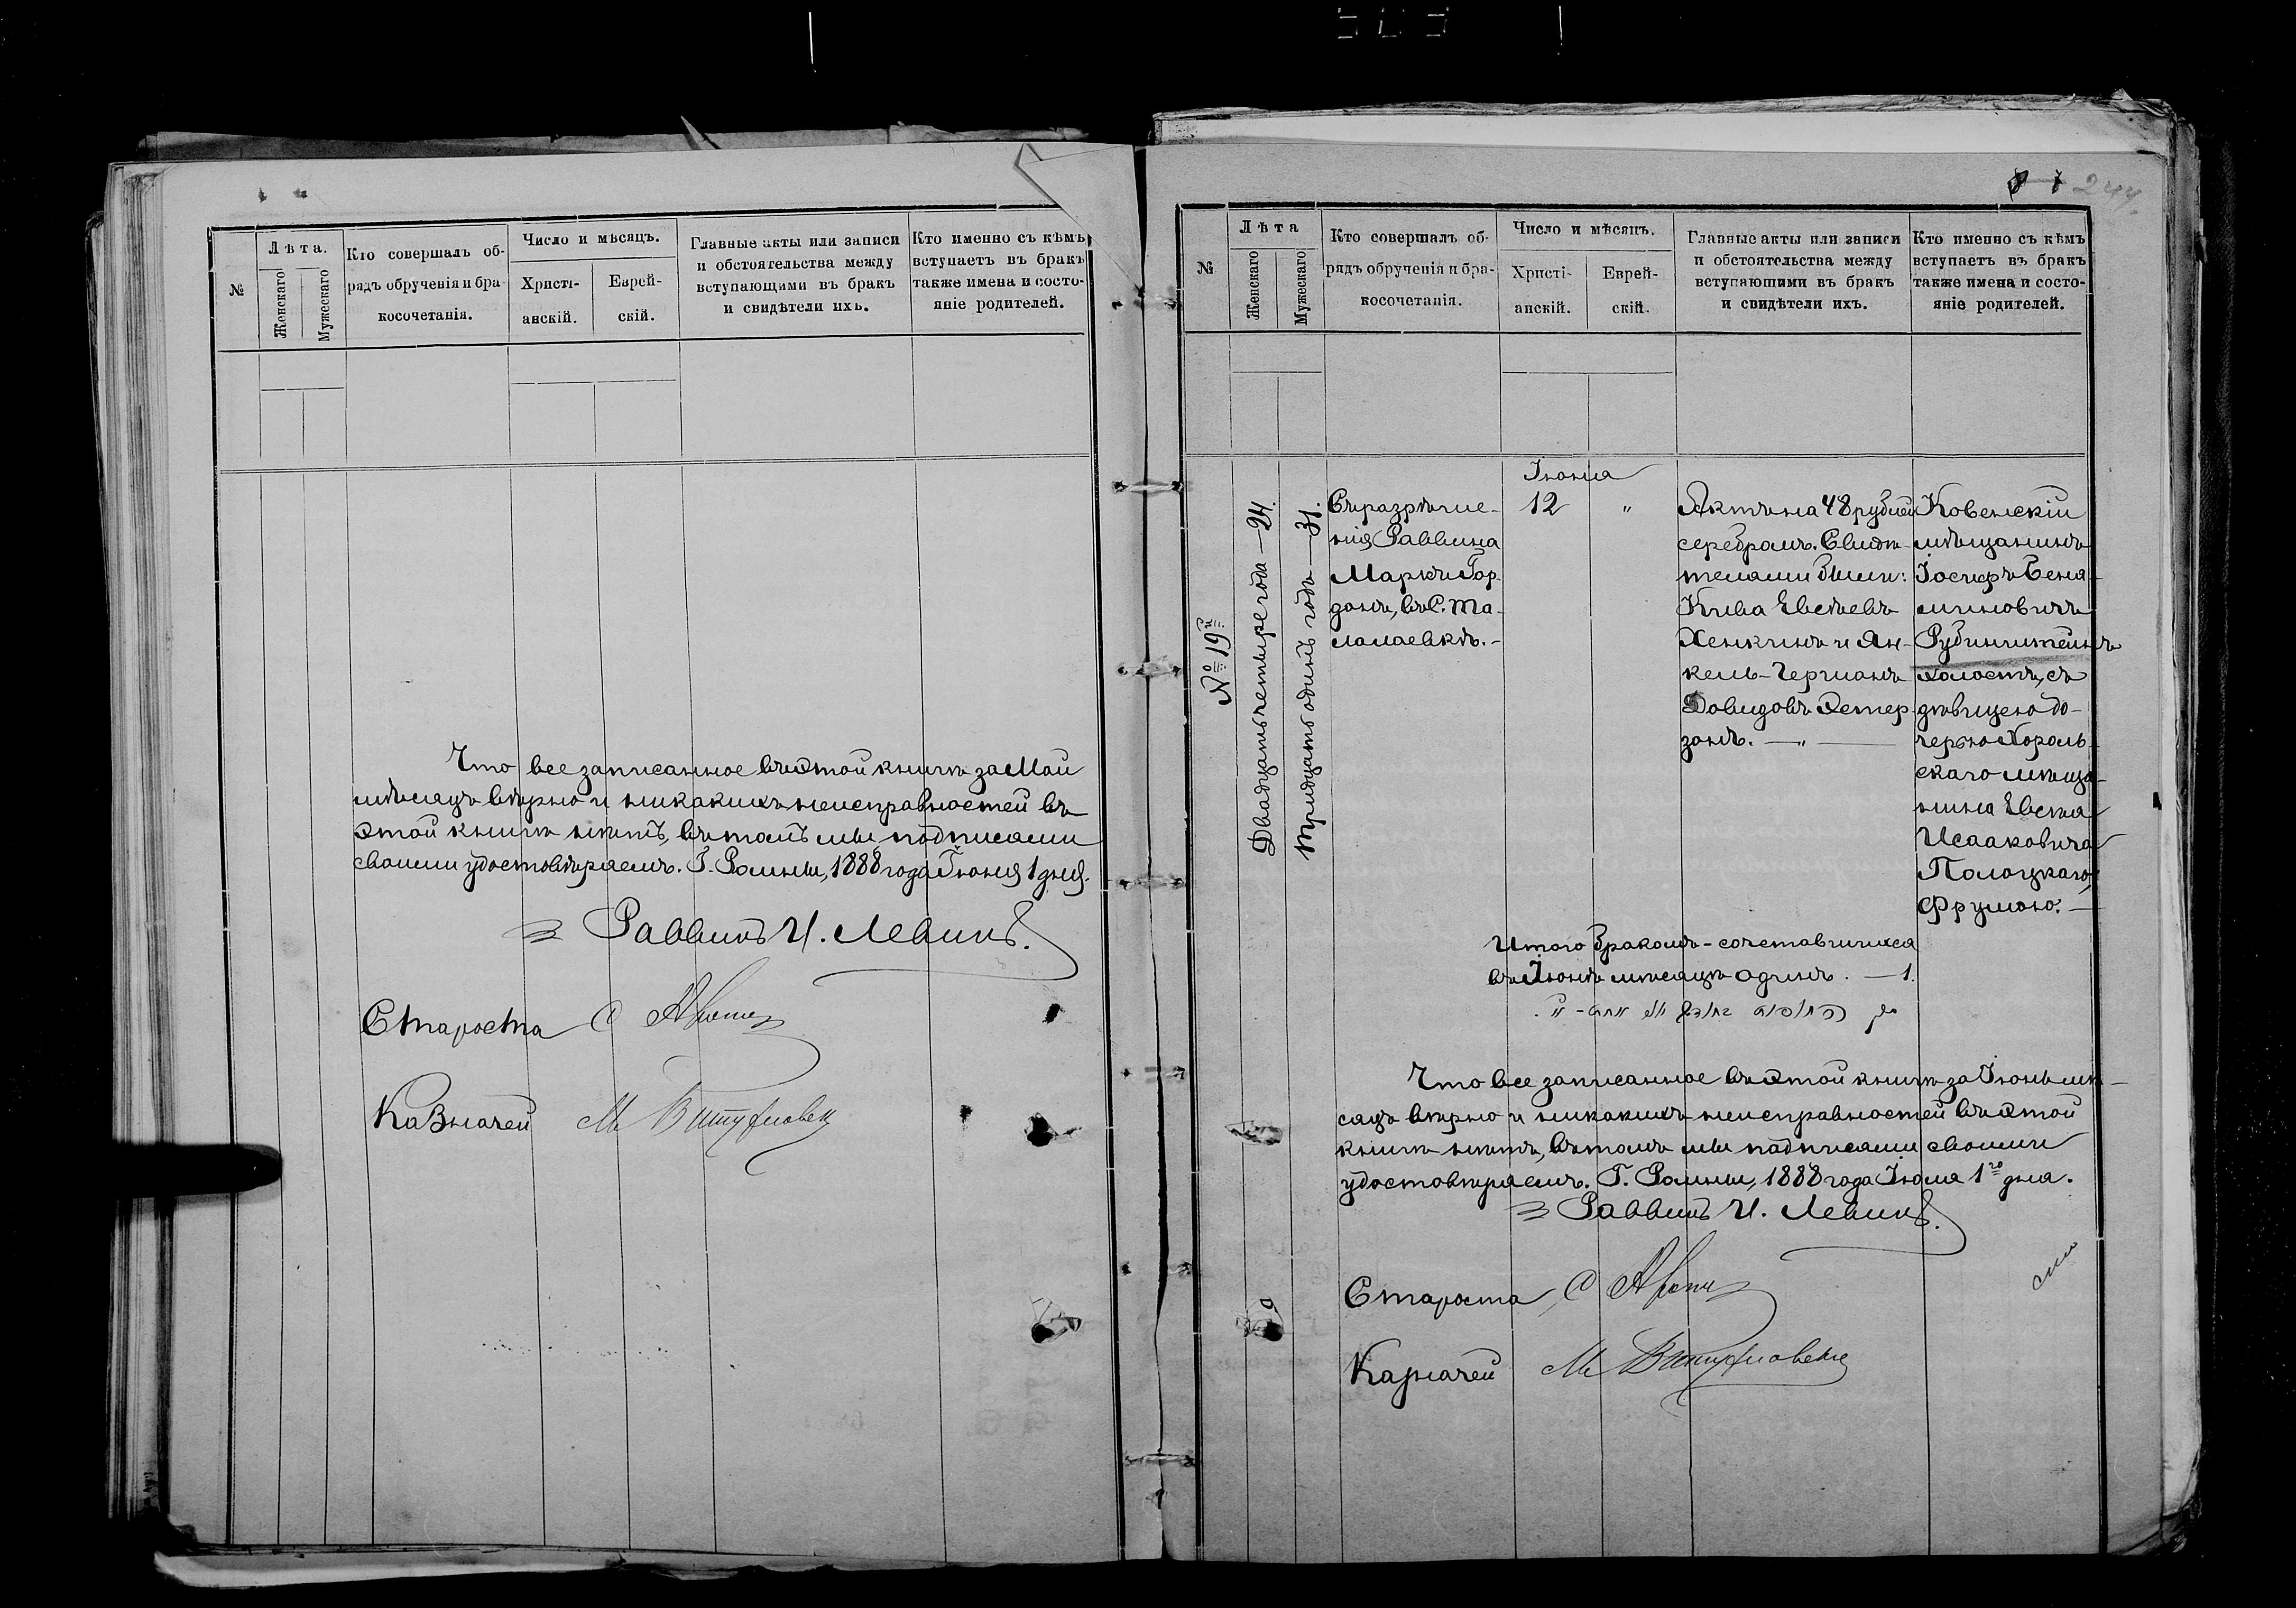 №
Лѣта.
Женскаго
Мужескаго
Кто совершалъ об-
рядъ обрученія и бра-
косочетанія.
Число и мѣсяцъ.
Христі-
анскій.
Еврей-
скій.
Главные акты или записи
и обстоятельства между
вступающими въ бракъ
и свидѣтели ихъ.
Кто именно съ кѣмъ
вступаетъ въ бракъ
также имена и состо-
яніе родителей.
Что все записанное въ этой книгѣ за Май
мѣсяцъ вѣрно и никакихъ неисправностей въ
этой книгѣ нѣтъ, въ томъ мы подписями
своими удостовѣряемъ. Г. Ромны, 1888 года Іюня 1 дня.
Раввинъ И. Левинъ.
Староста С
Казначей М
№
Лѣта
Женскаго
Мужескаго
Кто совершалъ об-
рядъ обрученія и бра-
косочетанія.
Число и мѣсяцъ.
Христі-
анскій.
Еврей-
скій.
Главные акты или записи
и обстоятельства между
вступающими въ бракъ
и свидѣтели ихъ.
Кто именно съ кѣмъ
вступаетъ въ бракъ
также имена и состо-
яніе родителей.
№ 19й
Двадцать четыре года — 24.
Тридцать одинъ годъ — 31.
Съ разрѣше-
нія Раввина
Маркъ Гор-
донъ, въ С. Та-
лалаевкѣ. –
Іюня
12 "
Актъ на 48 рублей
серебромъ. Свидѣ-
телями были:
Кива Евсѣевъ
Хенкинъ и Ян-
кель-Германъ
Довидовъ Эстер-
зонъ. — " —
Ковенскій
мѣщанинъ
Іосифъ Беня-
миновичъ
Рубинштейнъ
холостъ, съ
дѣвицею до-
черью Хороль-
скаго мѣща-
нина Евсѣя
Исааковича
Полоцкаго,
Фрумою. —
Итого бракомъ-сочетавшихся
въ Іюнѣ мѣсяцѣ одинъ. — 1.
Что все записанное въ этой книгѣ за Іюнь мѣ-
сяцъ вѣрно и никакихъ неисправностей въ этой
книгѣ нѣтъ, въ томъ мы подписями своими
удостовѣряемъ. Г. Ромны, 1888 года Іюля 1го дня.
Раввинъ И. Левинъ.
Староста С
Казначей М